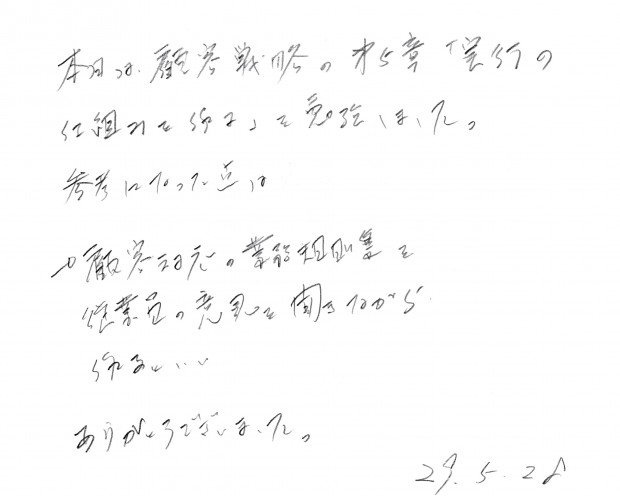 本日は、顧客戦略の第5章「実行の
仕組みを作る」を勉強しました。
参考になった点は
顧客対応の業務規則集を
従業員の意見を聞きながら
作るといい
ありがとうございました。
29.5.28